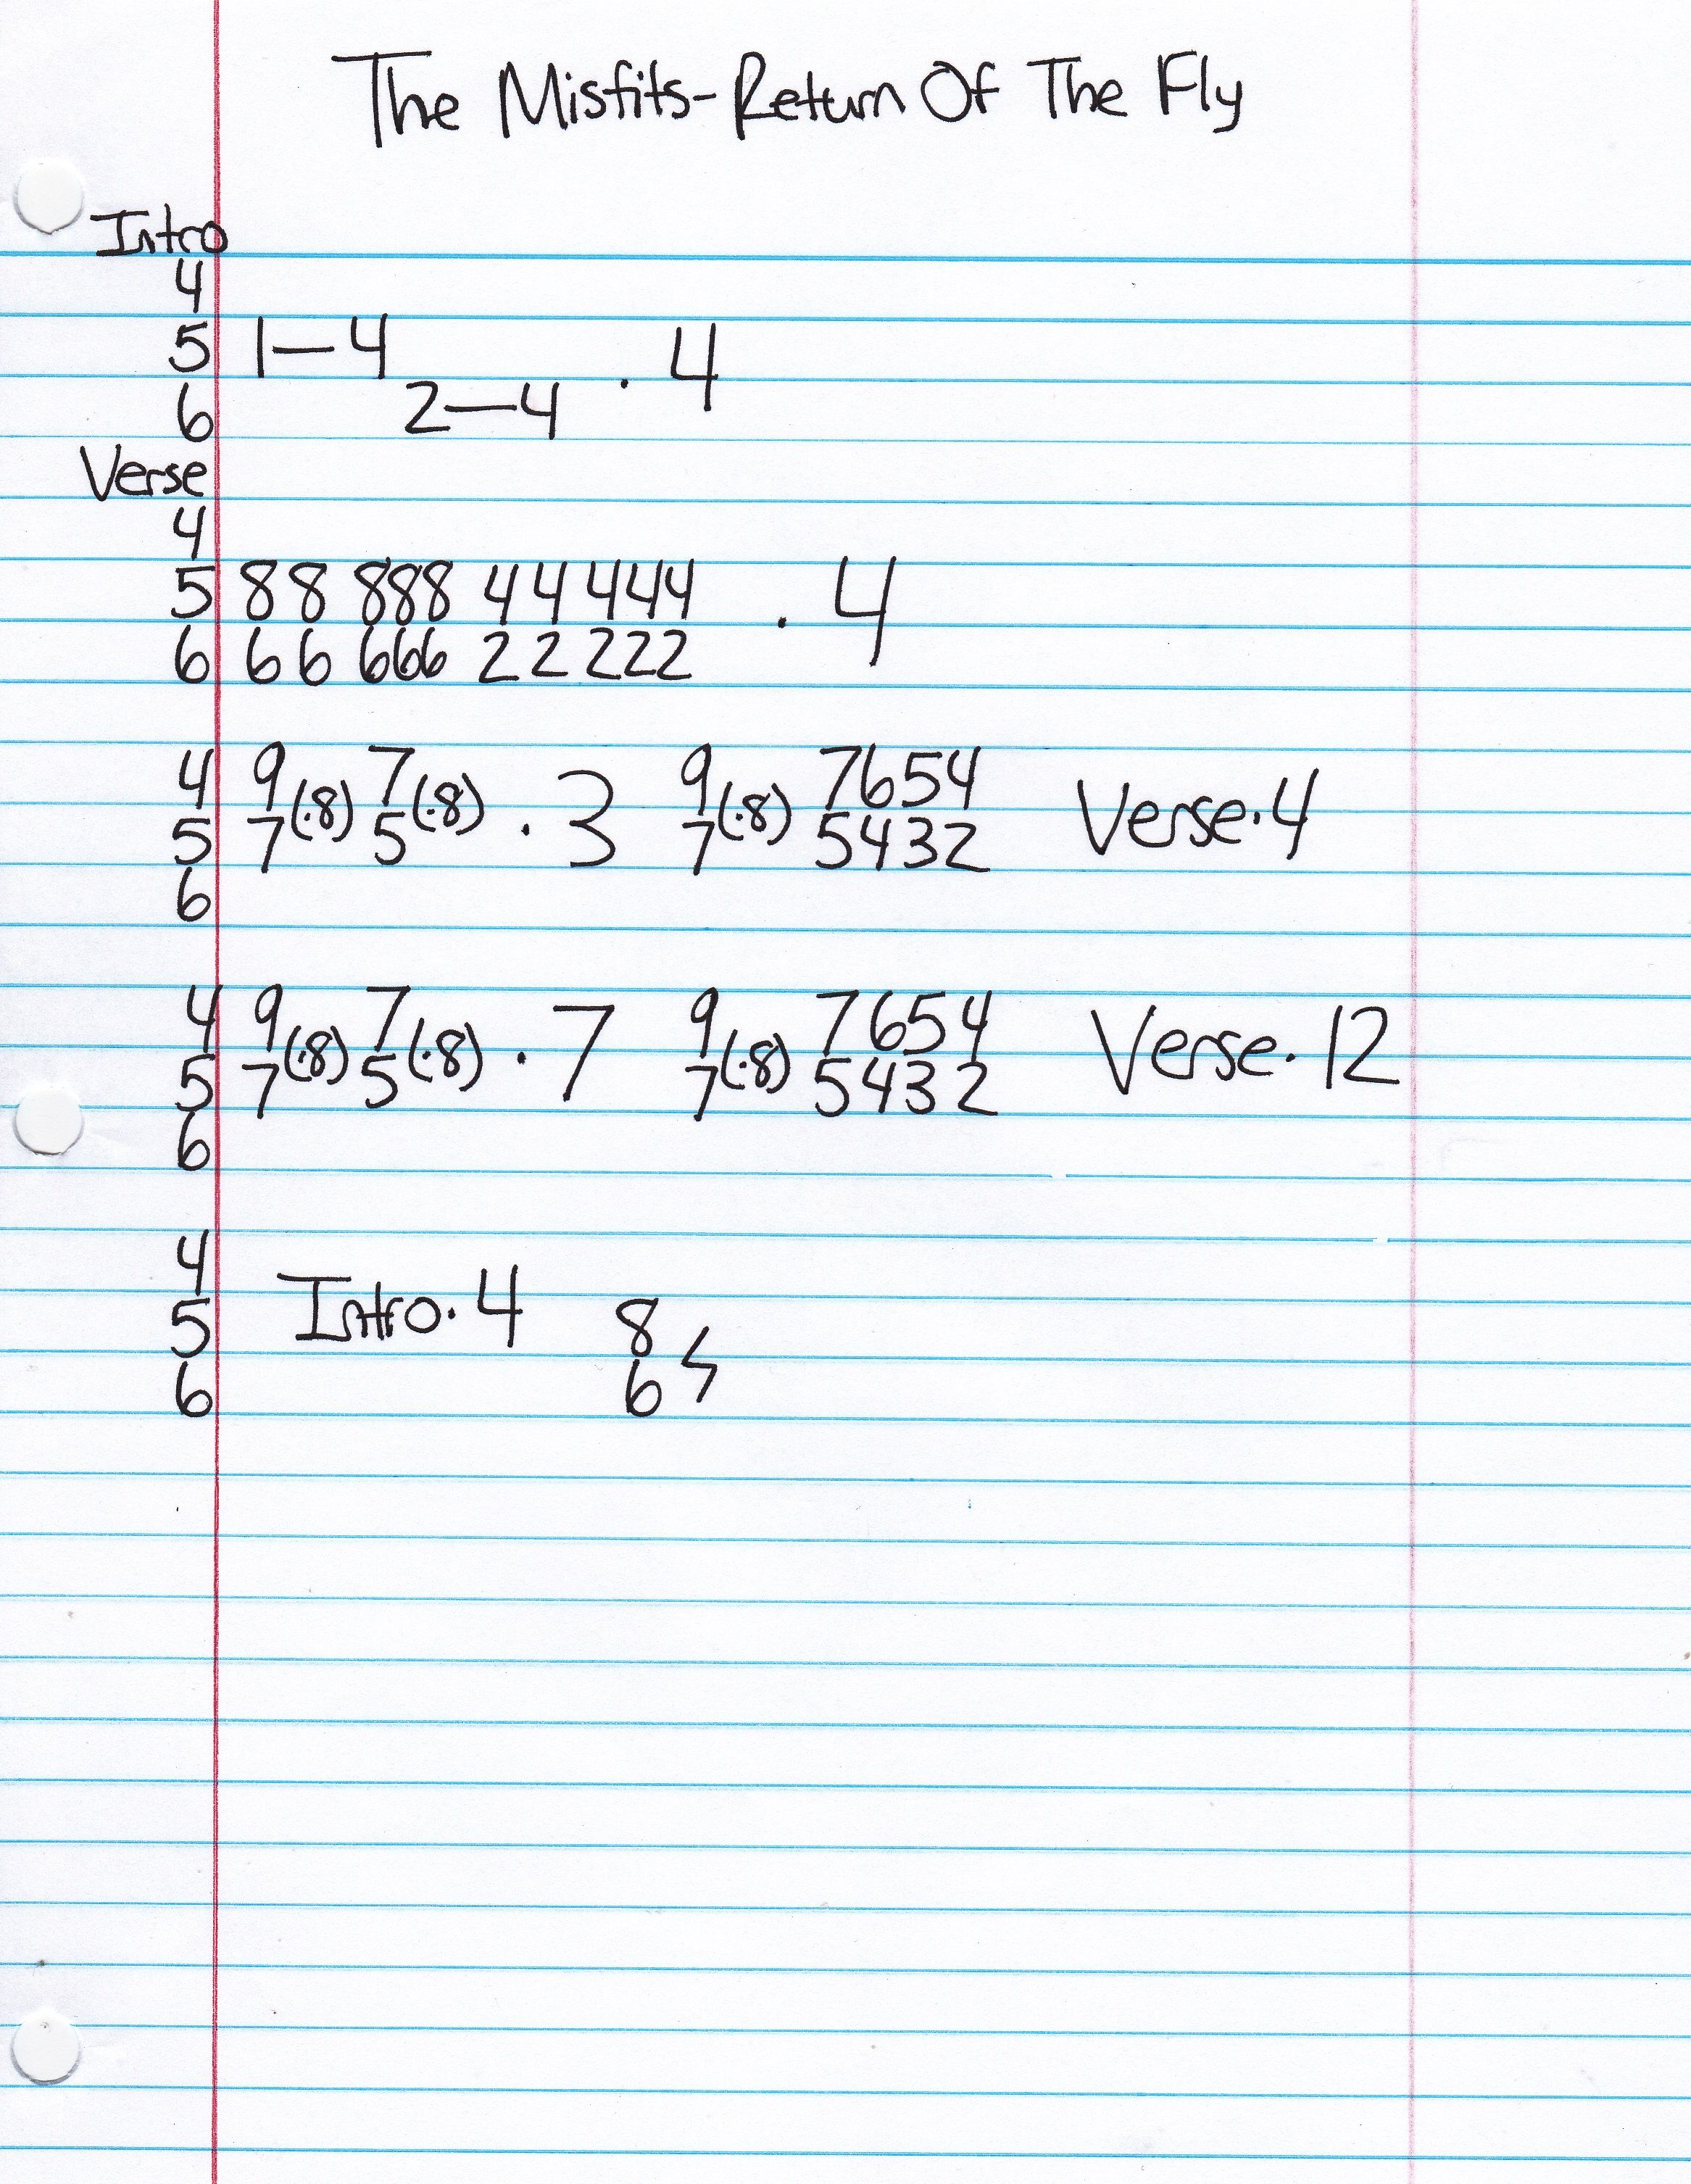 The Misfits-Return Of The Fly
Intro
4
5 1—4
6 2—4 · 4
Verse
4
5 88 888 44 444
6 66 666 22 222 · 4
4 9 7 9 7654
(·8) (·8) · 3 (·8) Verse·4
5 7 5 7 5432
6
4 9 7 9 7654
(·8) (·8) · 7 (·8) Verse·12
5 7 5 7 5432
6
4
5 Intro·4 8
6 6